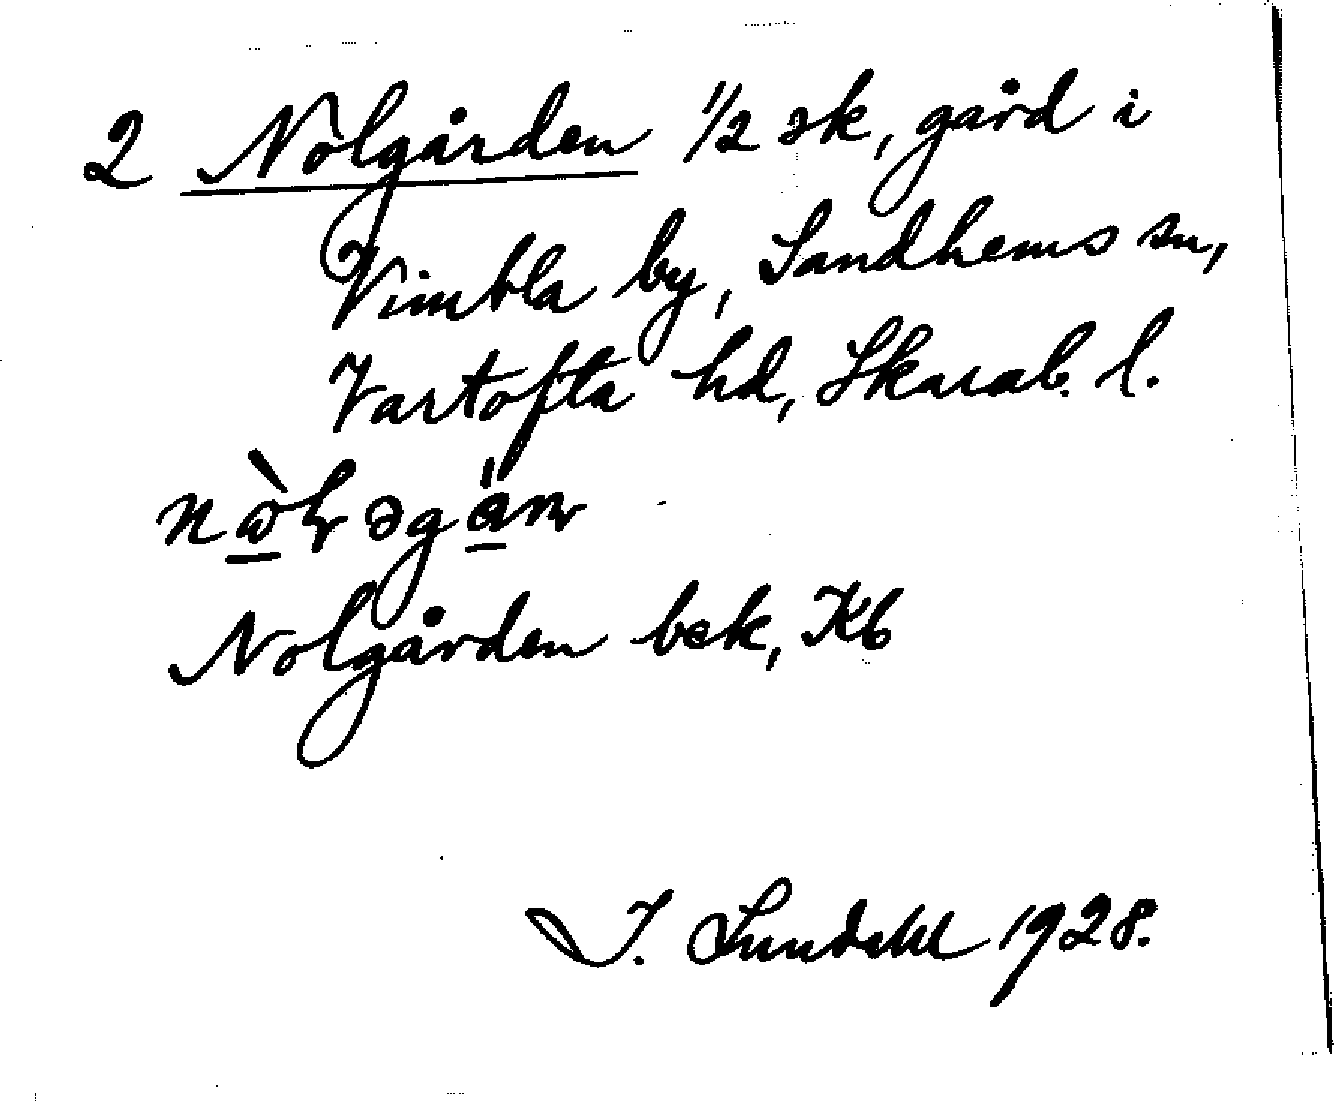 2 Nolgården 1/2 sk, gård i
Vimbla by, Sandhems sn,
Vartofta hd, Skarab. l.
Nolgården bek, Kb
I. Lundahl 1928.